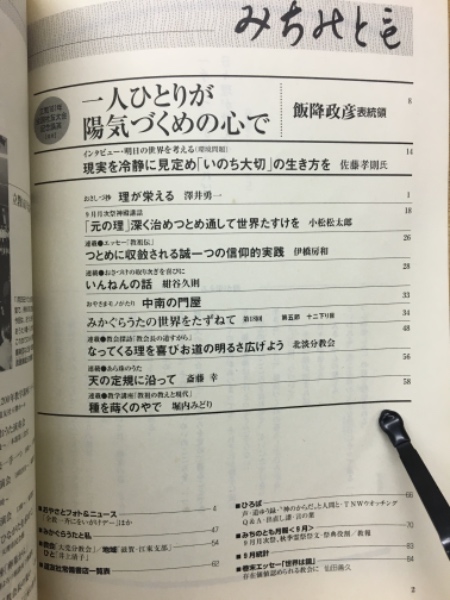 みちのとも
一人ひとりが
陽気づくめの心で
飯降政彦 表統領 8
インタビュー・明日の世界を考える(環境問題) 14
現実を冷静に見定め「いのち大切」の生き方を 佐藤孝則氏
おさしづ抄 理が栄える 澤井勇一 1
9月月次祭神殿講話 18
「元の理」深く治めつとめ通して世界たすけを 小松松太郎
連載●エッセー「教祖伝」 26
つとめに収斂される誠一つの信仰的実践 伊橋房和
連載●おさづけの取り次ぎを喜びに 28
いんねんの話 紺谷久則
おやさまモノがたり 中南の門屋 33
みかぐらうたの世界をたずねて 第19回 第五節 十二下り目 34
連載●教会探訪「教会長の道すがら」 48
なってくる理を喜びお道の明るさ広げよう 北淡分教会
連載●あら株のうた 56
天の定規に沿って 斎藤 幸
連載●教学講座「教祖の教えと現代」 58
種を蒔くのやで 堀内みどり
■おやさとフォト&ニュース 4
■みかぐらうたと私 47
54
ひと「井上清子」
■道友社常備書店一覧表 62
■ひろば 66
Q&A・
■みちのとも月報〈9月〉 70
9月月次祭、秋季霊祭祭文・祭典役割/教報
■9月統計 83
■巻末エッセー「世界は鏡」
存在価値認められる教会に 84
2